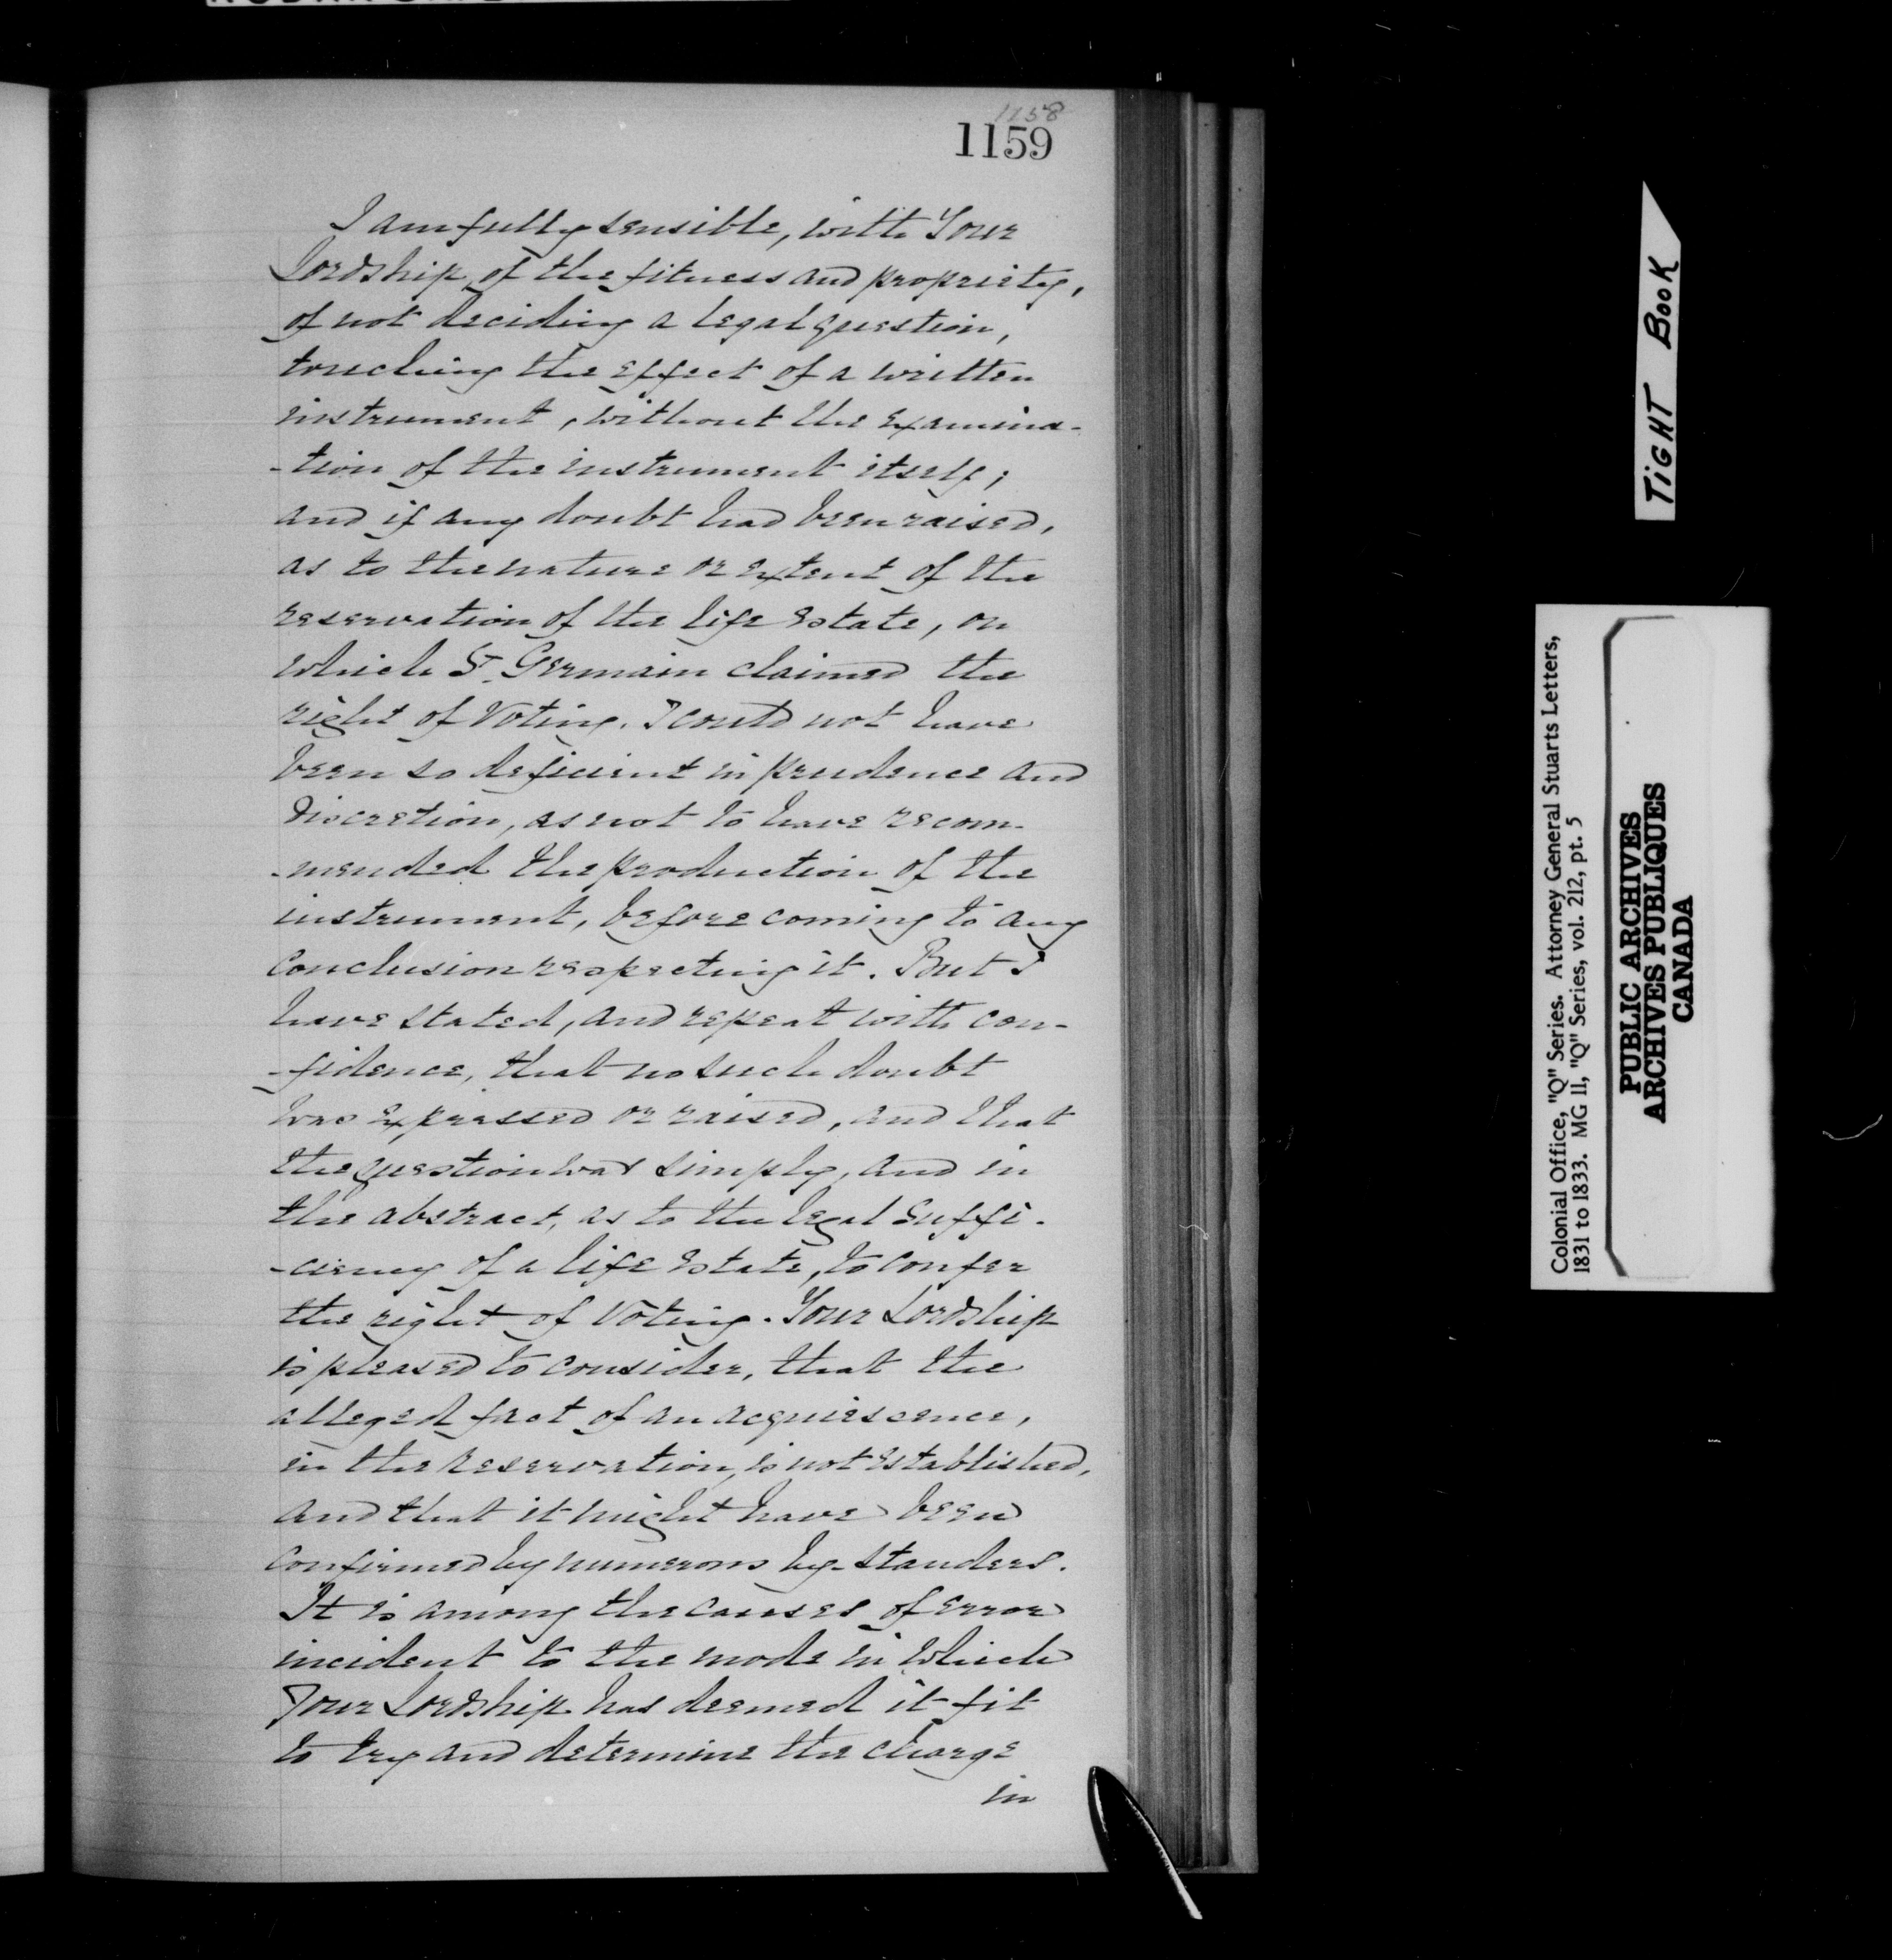 1158
1159
I am fully sensible, with Your
Lordship, of the fitness and propriety,
of not deciding a legal question,
touching the effect of a written
instrument, without the examina-
-tion of the instrument itself;
and if any doubt had been raised,
as to the nature or extent of the
reservation of the life estate, on
which St. Germain claimed the
right of Voting. I could not have
been so deficient in prudence and
Discretion, as not to have recom-
-mended the production of the
instrument, before coming to any
Conclusion respecting it. But I
have stated, and repeat with con-
-fidence, that no such doubt
was expressed or raised, and that
the question was simply, and in
the abstract, as to the legal suffi-
-ciency of a life estate, to confer
the right of Voting. Your Lordship
is pleased to consider, that the
alleged fact of an acquiescence,
in the reservation, is not established,
and that it might have been
confirmed by numerous by-standers.
It is among the causes of error
incident to the mode in which
Your Lordship has deemed it fit
to try and determine the charge
in
TIGHT BOOK
Colonial Office, "Q" Series. Attorney General Stuarts Letters,
1831 to 1833. MG 11, "Q" Series, vol. 212, pt. 5
PUBLIC ARCHIVES
ARCHIVES PUBLIQUES
CANADA